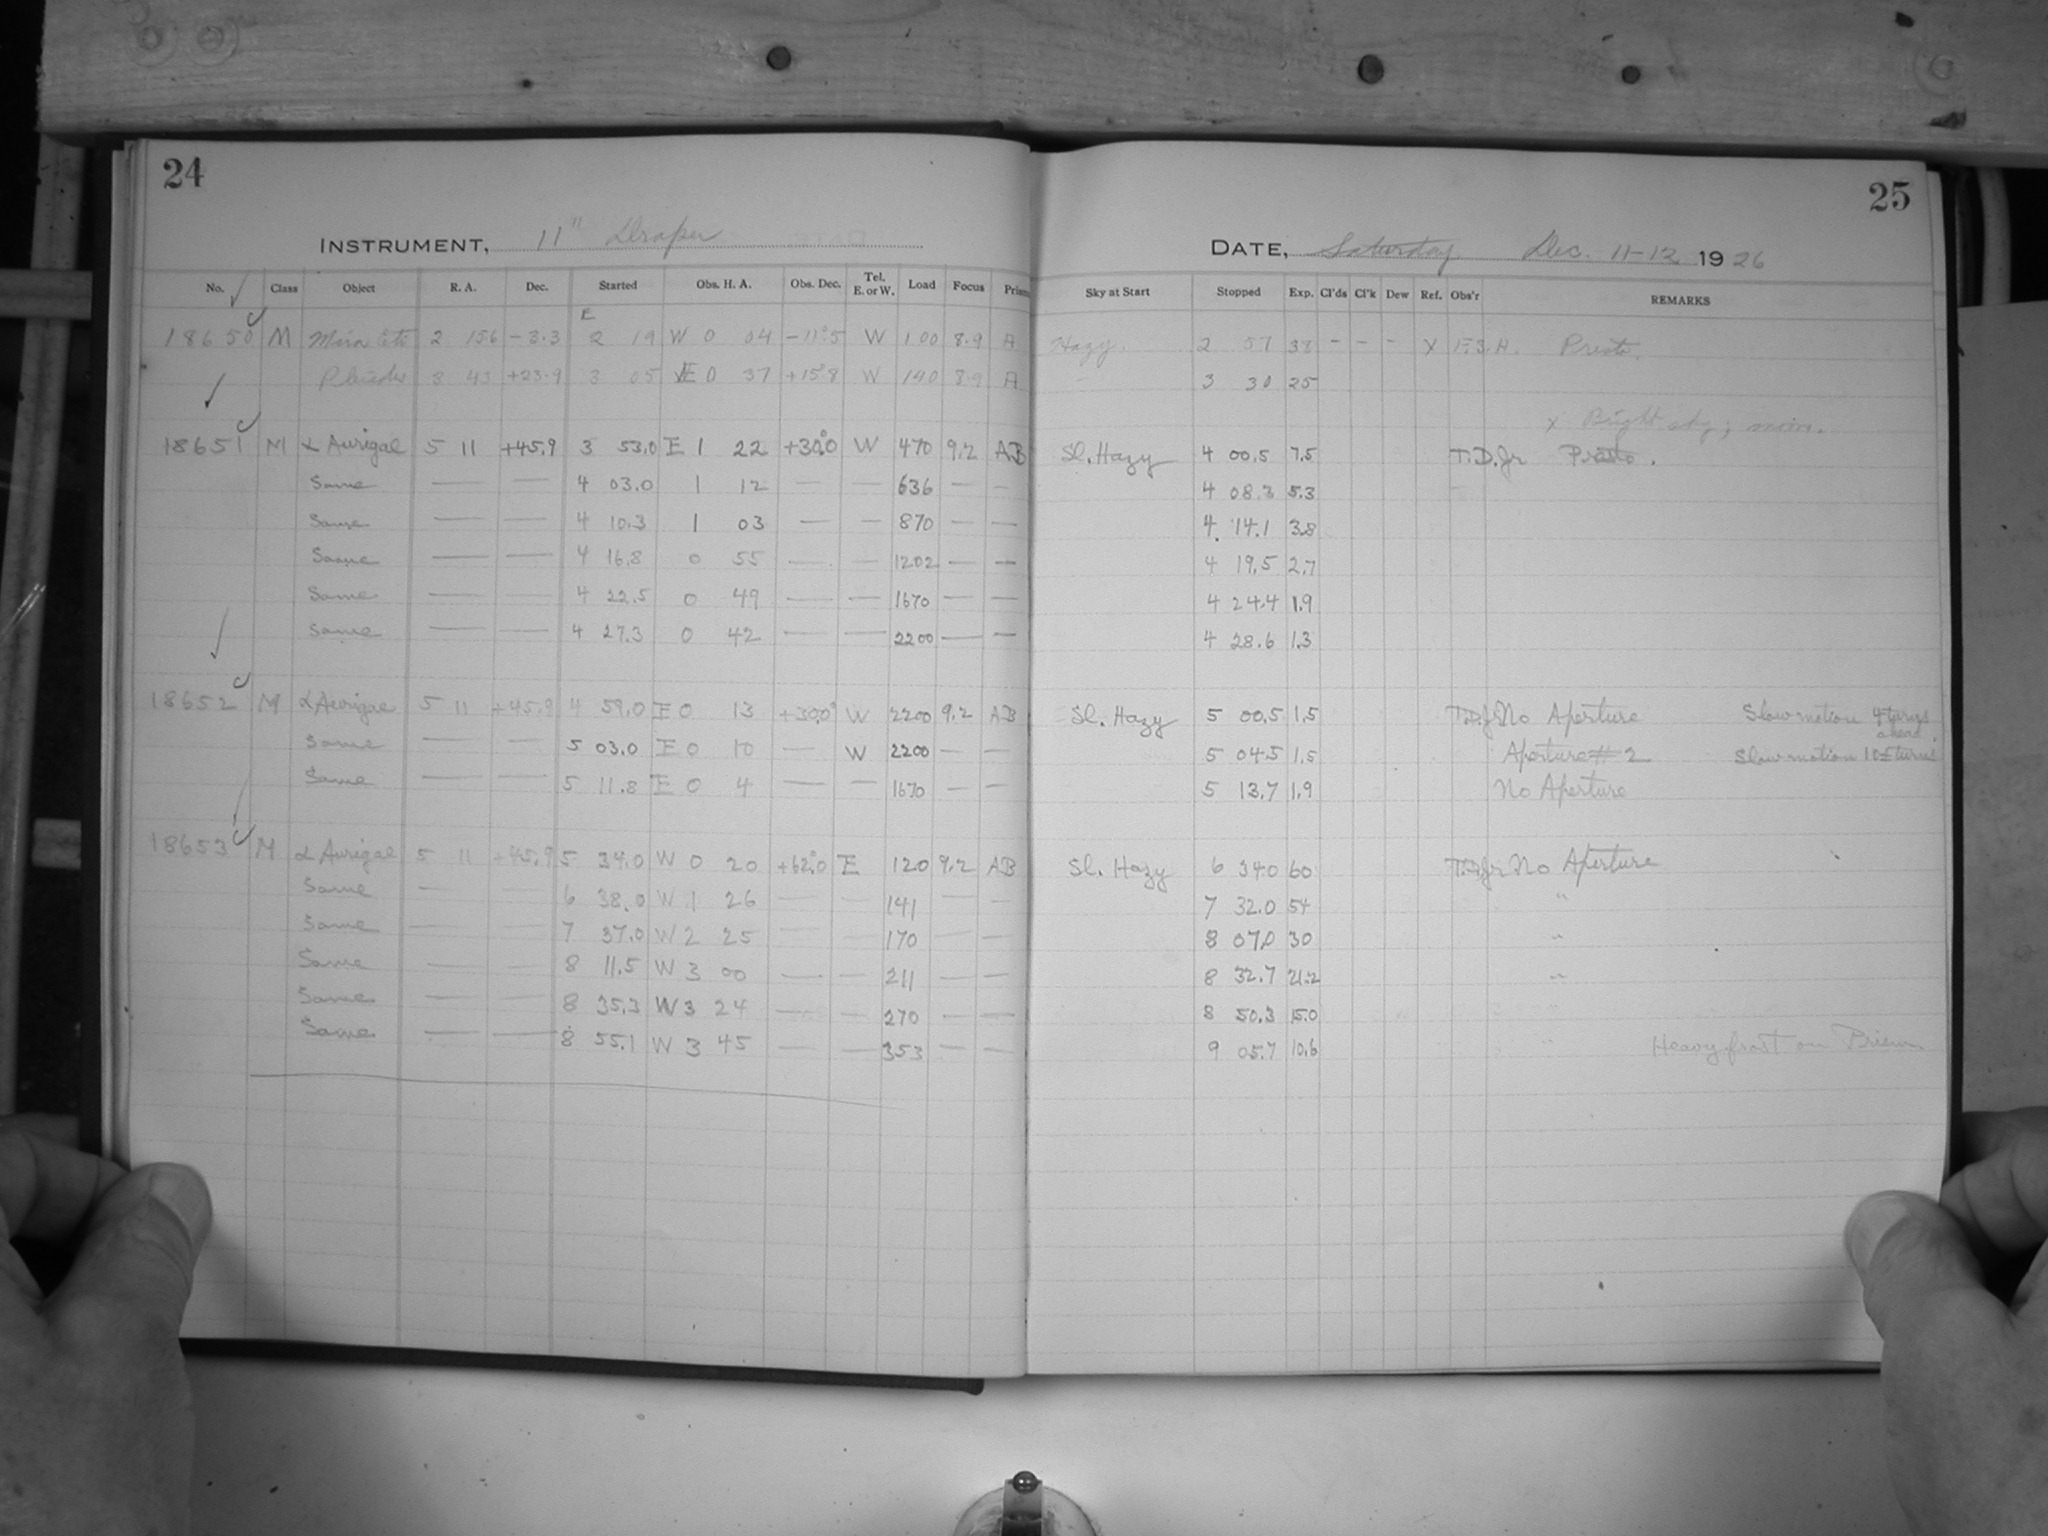 24
25
INSTRUMENT, 11" Draper
DATE, Saturday Dec. 11-12 1926
No. Class Object R. A. Dec. Started Obs. H. A. Obs. Dec. Tel. E. or W. Load Focus Prism Sky at Start Stopped Exp. Cl'ds Cl'k Dew Ref. Obs'r REMARKS
E
18650 M Mira Ceti 2 15.6 -3.3 2 19 W 0 04 -11°.5 W 100 8.9 A Hazy. 2 57 38 - - - X F.S.H. Presto.
3 43 +23.9 3 05 E 0 37 +15°.8 W 140 8.9 A 3 30 25
x Bright sky; moon.
18651 M α Aurigae 5 11 +45.9 3 53.0 E 1 22 +30°.0 W 470 9.2 AB Sl. Hazy 4 00.5 7.5 T.D.Jr Presto.
Same — — 4 03.0 1 12 — — 636 — — 4 08.3 5.3
Same — — 4 10.3 1 03 — — 870 — — 4 14.1 3.8
Same — — 4 16.8 0 55 — — 1202 — — 4 19.5 2.7
Same — — 4 22.5 0 49 — — 1670 — — 4 24.4 1.9
Same — — 4 27.3 0 42 — — 2200 — — 4 28.6 1.3
18652 M α Aurigae 5 11 +45.9 4 59.0 E 0 13 +30.0° W 2200 9.2 AB Sl. Hazy 5 00.5 1.5 T.D.Jr No Aperture Slow motion 4 turns ahead.
Same — — 5 03.0 E 0 10 — W 2200 — — 5 04.5 1.5 Aperture # 2 Slow motion 10± turns
Same — — 5 11.8 E 0 4 — — 1670 — — 5 13.7 1.9 No Aperture
18653 M α Aurigae 5 11 +45.9 5 34.0 W 0 20 +62°.0 E 120 9.2 AB Sl. Hazy 6 34.0 60 T.D.Jr No Aperture
Same — — 6 38.0 W 1 26 — — 141 — — 7 32.0 54 "
Same — — 7 37.0 W 2 25 — — 170 — — 8 07.0 30 "
Same — — 8 11.5 W 3 00 — — 211 — — 8 32.7 21.2 "
Same — — 8 35.3 W 3 24 — — 270 — — 8 50.3 15.0 "
Same — — 8 55.1 W 3 45 — — 353 — — 9 05.7 10.6 " Heavy frost on Prism.